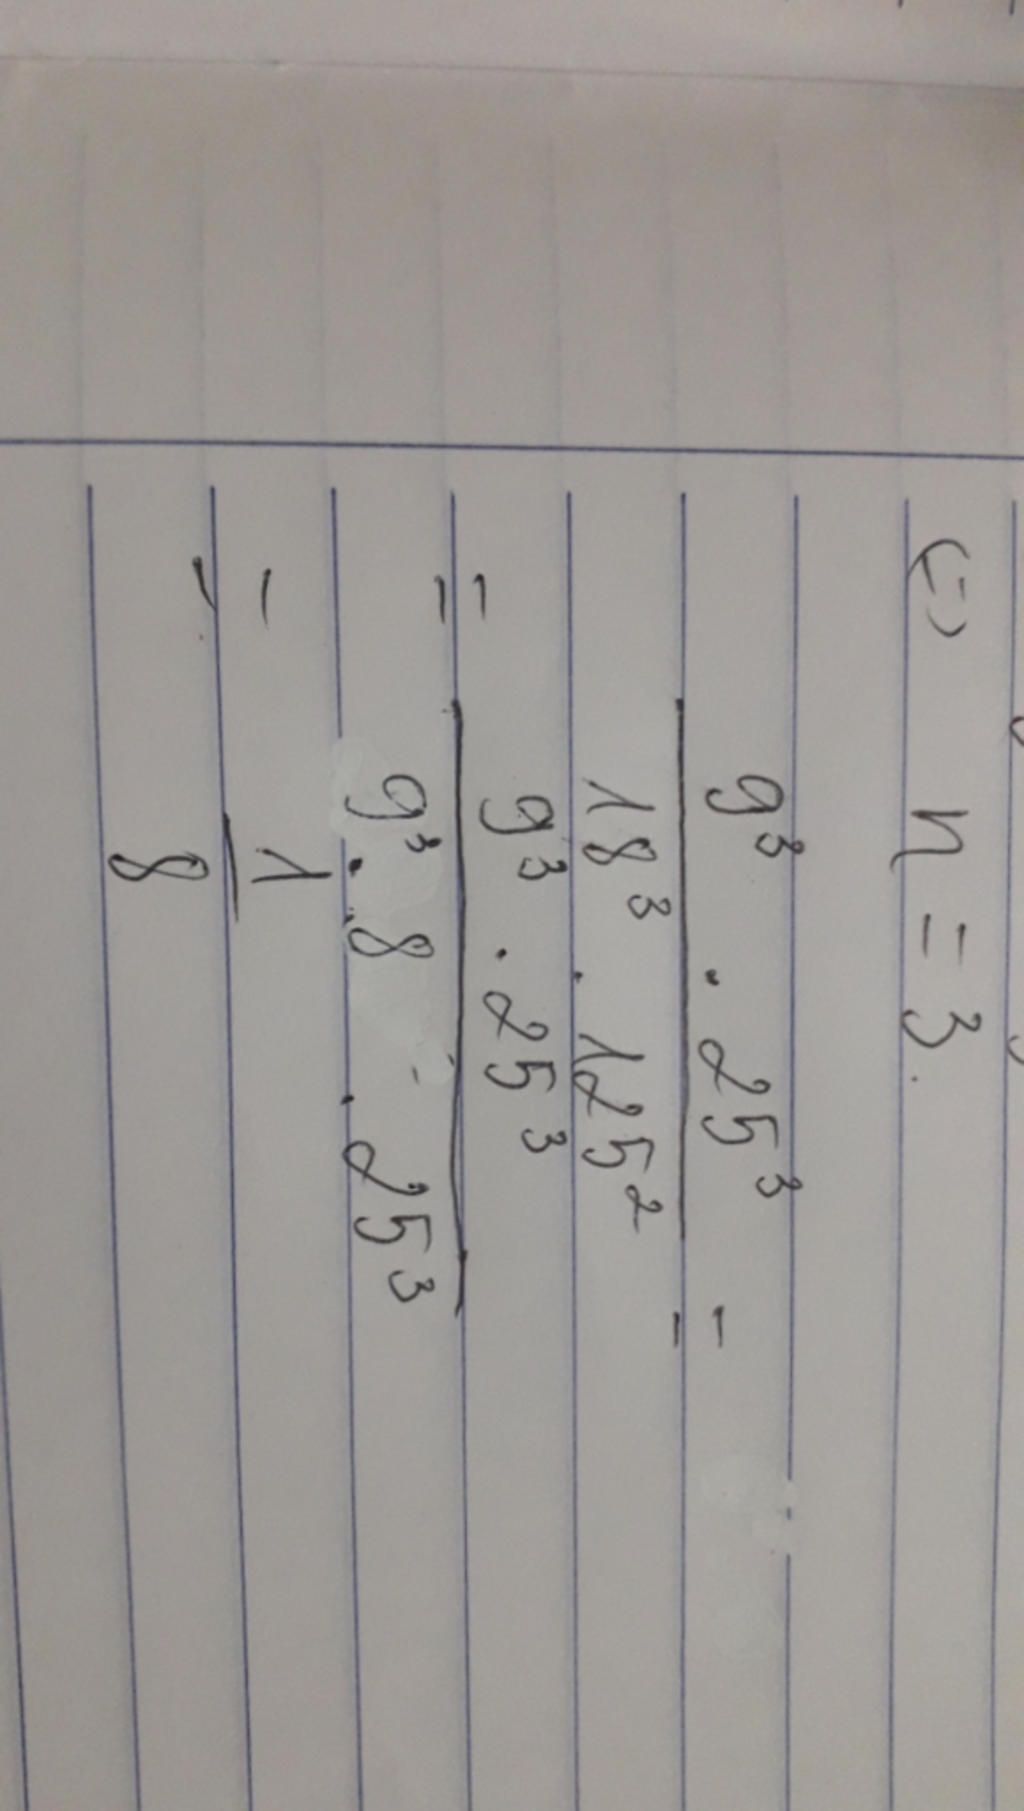 (=) n = 3.
9³ . 25³
18³ . 125² =
= 9³ . 25³
9³ . 8 . 25³
= 1
8